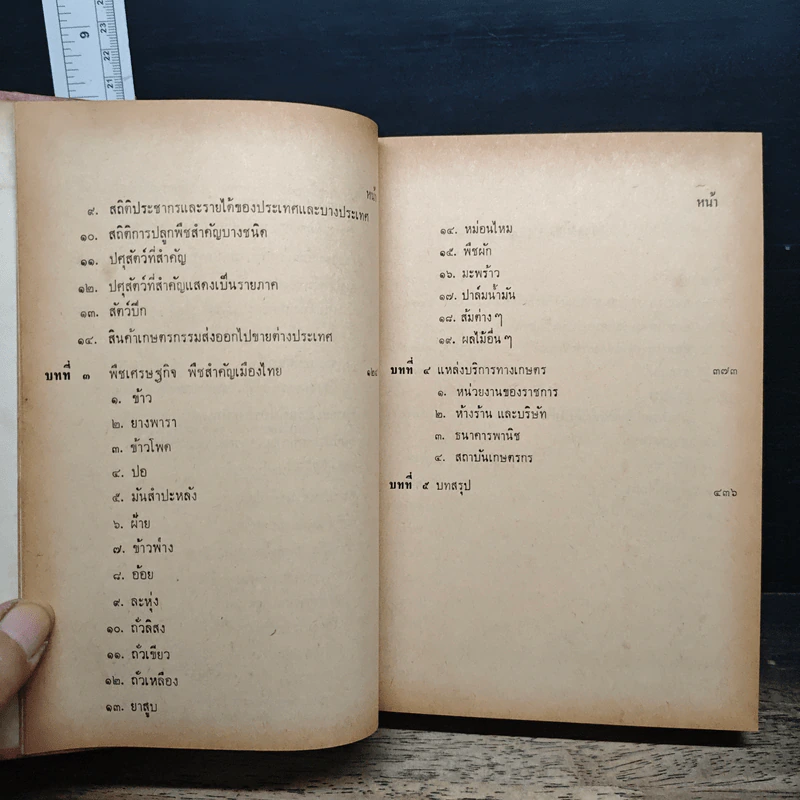 หน้า
๙. สถิติประชากรและรายได้ของประเทศและบางประเทศ
๑๐. สถิติการปลูกพืชสำคัญบางชนิด
๑๑. ปศุสัตว์ที่สำคัญ
๑๒. ปศุสัตว์ที่สำคัญแสดงเป็นรายภาค
๑๓. สัตว์ปีก
๑๔. สินค้าเกษตรกรรมส่งออกไปขายต่างประเทศ
บทที่ ๓ พืชเศรษฐกิจ พืชสำคัญเมืองไทย
๑. ข้าว
๒. ยางพารา
๓. ข้าวโพด
๔. ปอ
๕. มันสำปะหลัง
๖. ฝ้าย
๗. ข้าวฟ่าง
๘. อ้อย
๙. ละหุ่ง
๑๐. ถั่วลิสง
๑๑. ถั่วเขียว
๑๒. ถั่วเหลือง
๑๓. ยาสูบ
หน้า
๑๔. หม่อนไหม
๑๕. พืชผัก
๑๖. มะพร้าว
๑๗. ปาล์มน้ำมัน
๑๘. ส้มต่างๆ
๑๙. ผลไม้อื่นๆ
บทที่ ๔ แหล่งบริการทางเกษตร ๓๗๓
๑. หน่วยงานของราชการ
๒. ห้างร้าน และบริษัท
๓. ธนาคารพานิช
๔. สถาบันเกษตรกร
บทที่ ๕ บทสรุป ๔๓๖
9
23
22
21